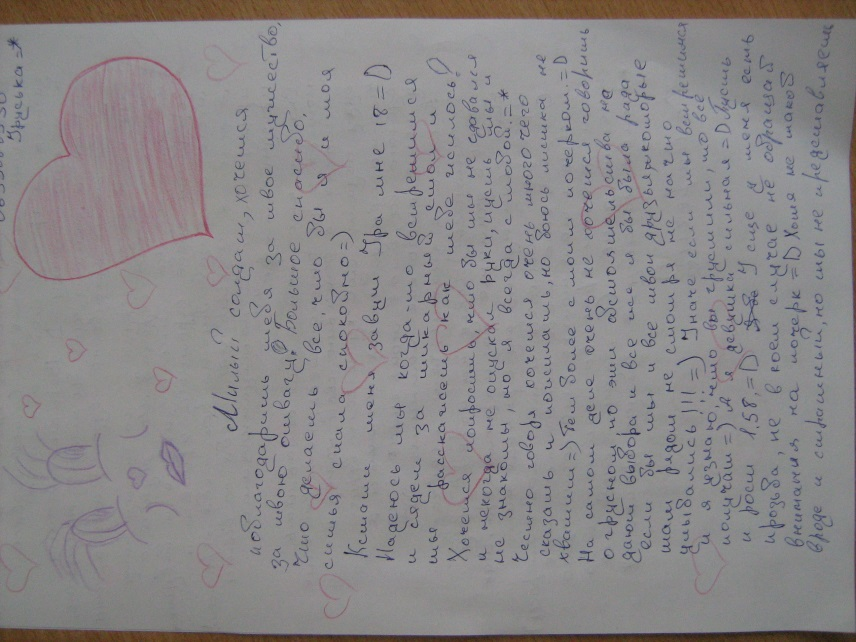 Милый солдат, хочется
поблагодарить тебя за твое мужество,
за твою отвагу. Большое спасибо,
что делаешь все, чтобы я и моя
семья спала спокойно=)
Кстати меня завут Ира мне 18=D
Надеюсь мы когда-то встретимся
и сядем за шикарный стол и
ты расскажешь как тебе жилось?
Хочется попросить, что бы ты не сдовался
и некогда не опускал руки, пусть мы и
не знакомы, но я всегда с тобой.=*
Чесно говоря хочется очень много чего
сказать и пожилать, но боюсь листика не
хватит=) Тем более с моим почерком.=D
На самом деле очень не хочется говорить
о грусном но эти обстоятельства не
дают выбора и все же я бы была рада
если бы ты и все твои друзья, которые
там рядом не смотря не начто
улыбались!!! =) Иначе если мы встретимся
и я узнаю, что вы грустили, то все
получат=) А я девушка сильная=D пусть
и рост 1.58,=D И еще у меня есть
прозьба, не в коем случае не обращай
внимания на почерк=D Хотя не такой
вроде и страшный, но ты не представляешь
Іруська=*